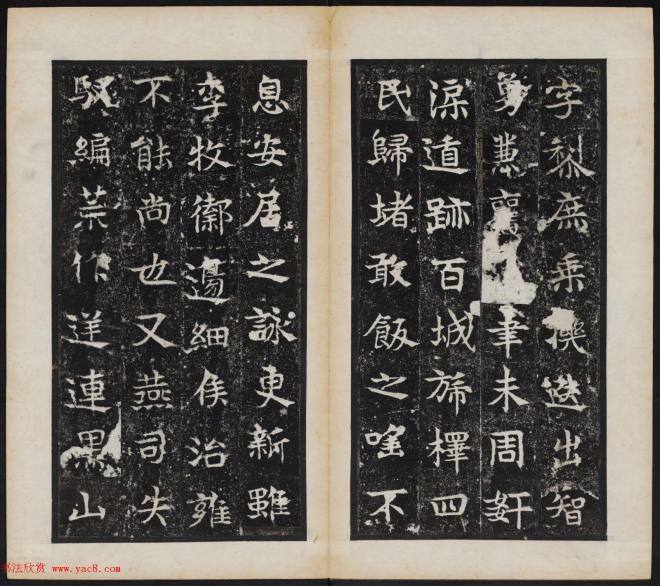 字黎庶乘機迭出智
勇兼襄 聿未周奸
深遁跡百城旆檡四
民歸堵敢飯之唯不
息安居之詠更新雖
李牧禦邊細侯治雍
不能尚也又燕司失
馭編菜作逆連黑山
书法欣赏 www.yac8.com